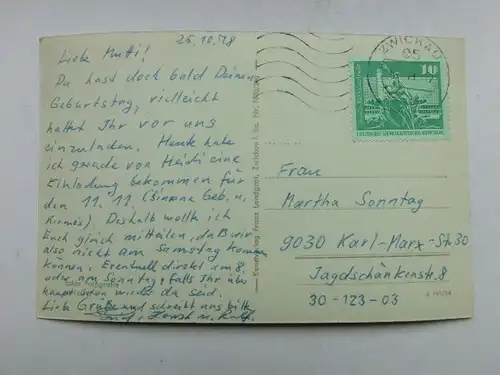 26.10.78
Liebe Mutti!
Du hast doch bald Deinen
Geburtstag, vielleicht
hattet Ihr vor uns
einzuladen. Heute habe
ich gerade von Heidi eine
Einladung bekommen für
den 11.11. (Simone Geb. u.
Kirmes). Deshalb wollte ich
Euch gleich mitteilen, daß wir
also nicht am Samstag kommen
können. Eventuell direkt am 8.
oder am Sonntag, falls Ihr über-
haupt
wieder da seid.
Liebe Grüße und schreibt uns bitte
Horst u. Ralf.
Echte Fotografie
Kunstverlag Franz Landgraf, Zwickau i. Sa.
ZWICKAU
95
10
DEUTSCHE DEMOKRATISCHE REPUBLIK
Frau
Martha Sonntag
9030 Karl-Marx-St. 30
Jagdschänkenstr. 8
30-123-03